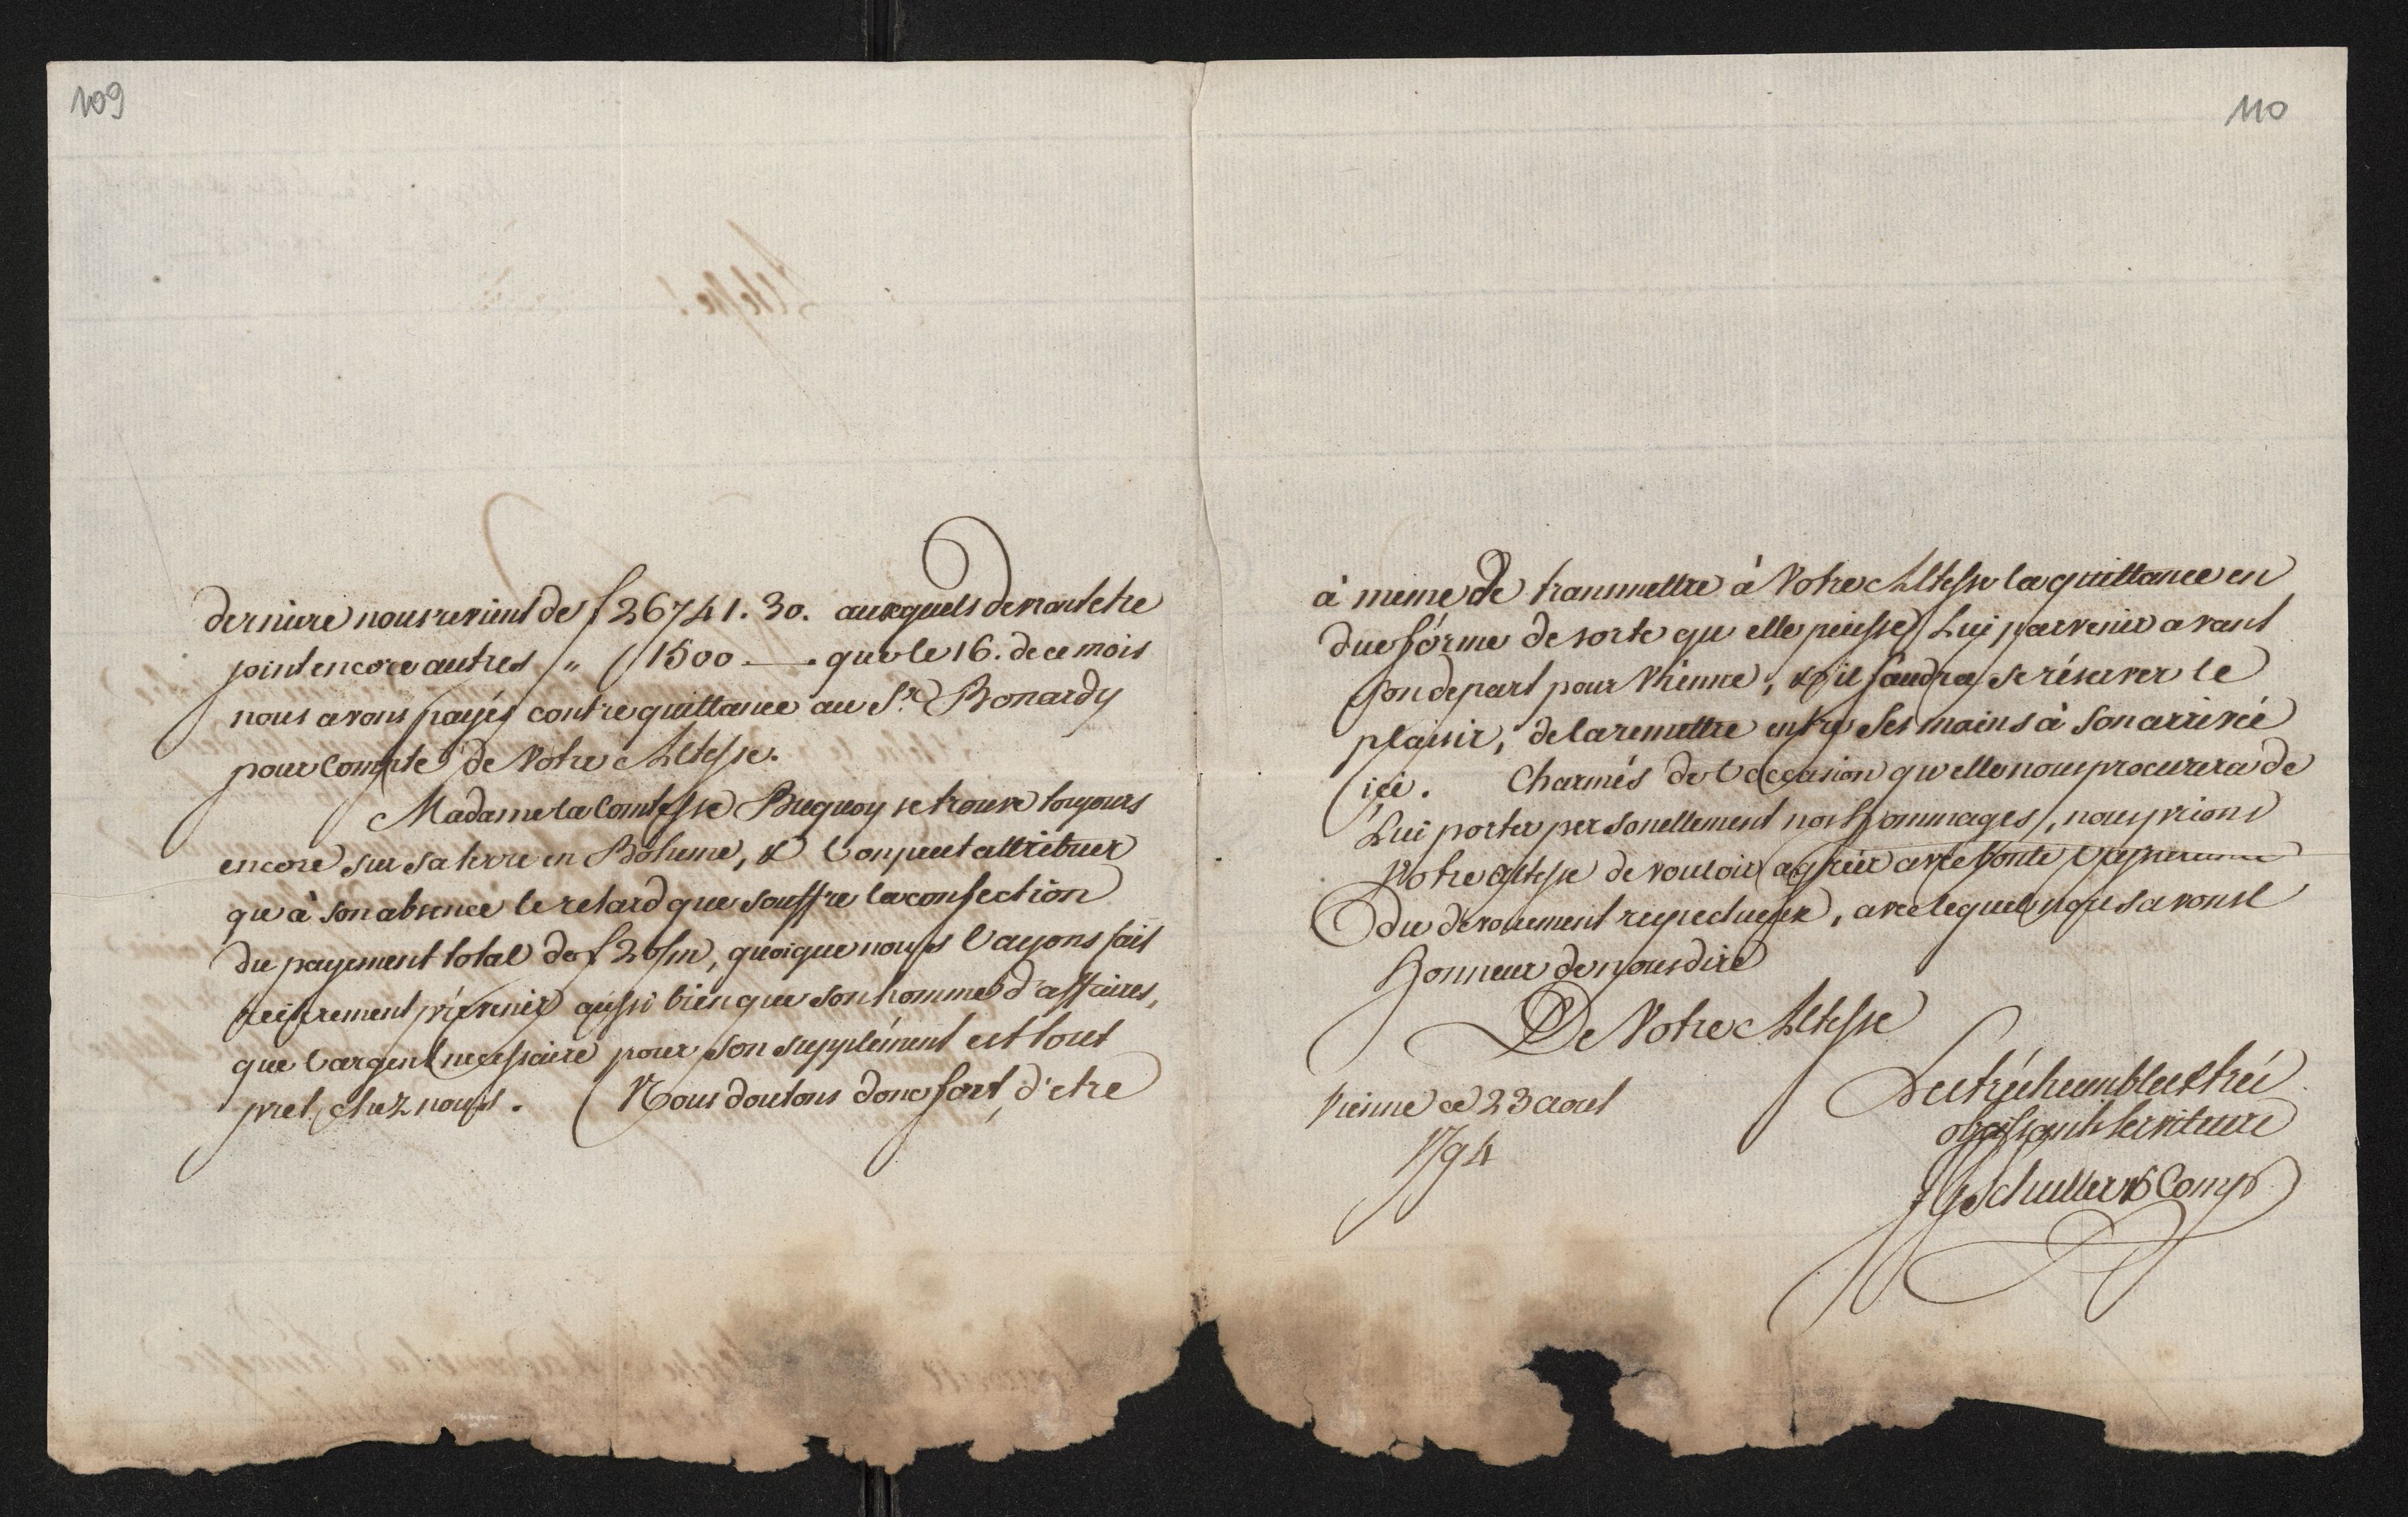 109
derniere nous revient de f 26741. 30. auxquels devront etre
joint encore autres " 1500 —. que le 16. de ce mois
nous avons payés contre quittance au Sr. Bonardy
pour Compte de Votre Altesse.
Madame la Comtesse Buquoy se trouve toujours
encore sur sa terre en Boheme, & l'on peut attribuer
qu'à son absence le retard que souffre la confection
du payement total de f 20/m, quoique nous l'ayons fait
prévenir aussi bien que son homme d'affaires,
que l'argent necessaire pour son supplément est tout
pret chez nous. Nous doutons donc fort, d'etre
110
à meme de transmettre à Votre Altesse la quittance en
due forme de sorte qu'elle puisse Lui parvenir avant
Son depart pour Vienne, & il faudra se réserver le
plaisir, de la remettre entre Ses mains à Son arrivée
ici. Charmés de l'occasion qu'elle nous procurera de
Lui porter personellement nos Hommages, nous prions
Votre Altesse de vouloir agréer avec bonté l'assurance
du devouement respectueux, avec lequel nous avons l'
Honneur de nous dire
De Votre Altesse
Vienne ce 23 aout
1794
Les trés humbles & trés
obeissants Serviteurs
J G Schuller & Comp